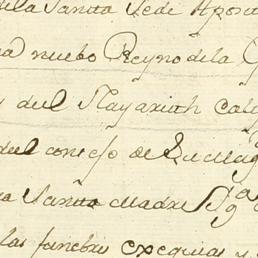 de la Santa Sede Apost
nuebo Reyno de la G
del Nayarith Cali
del consejo de Su Mag
Santa Madre Ygª
las funebres exequias y